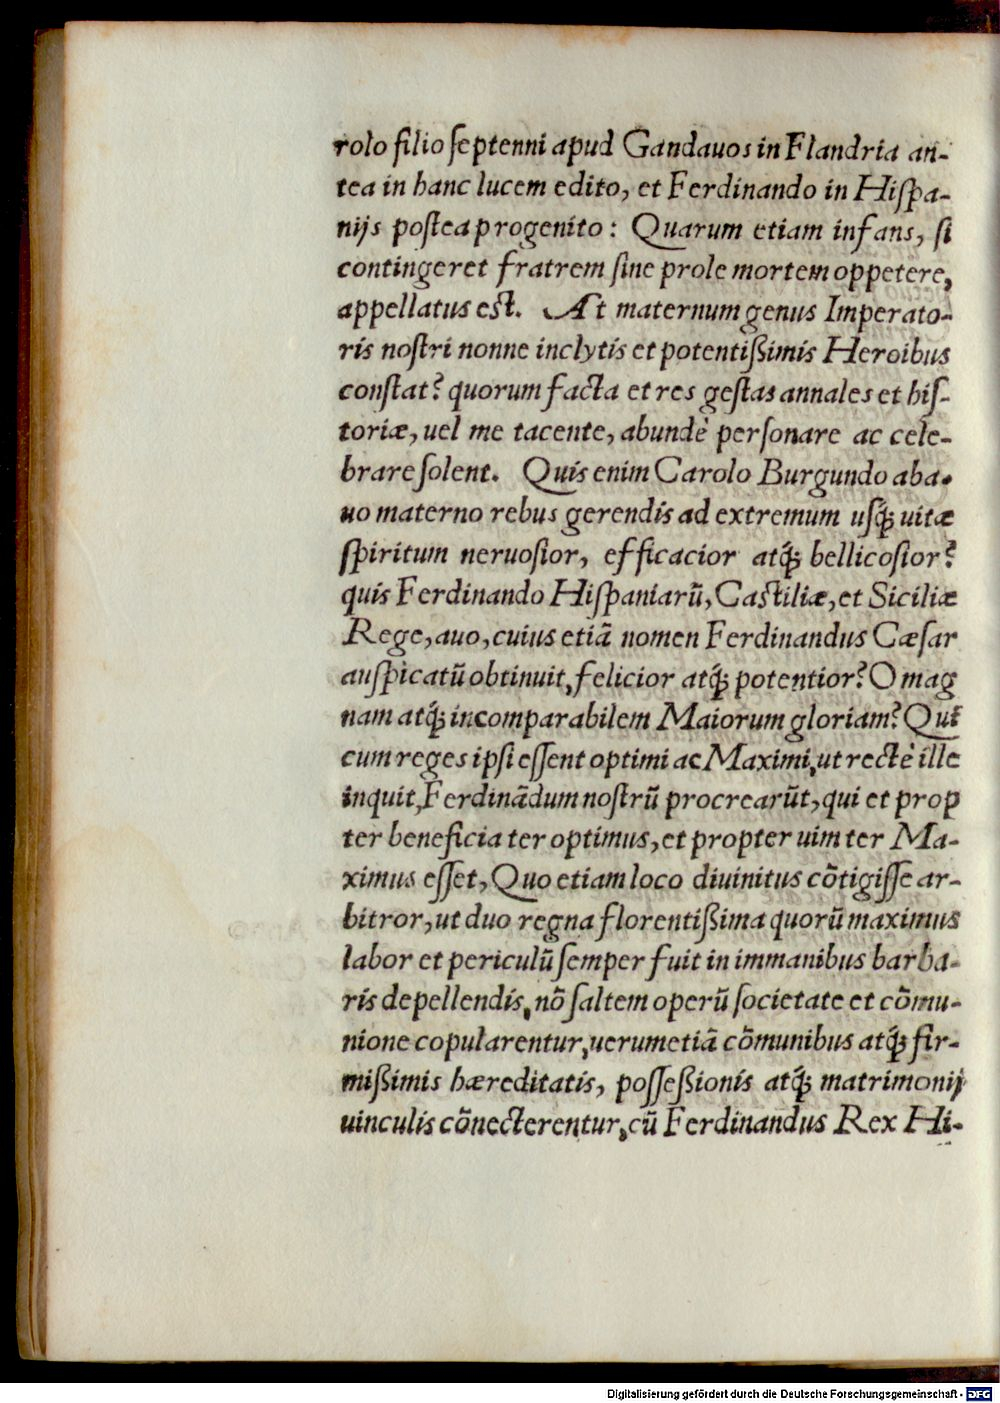 rolo filio ſeptenni apud Gandauos in Flandria an-
tea in hanc lucem edito, et Ferdinando in Hiſpa-
nijs poſtea progenito: Quarum etiam infans, ſi
contingeret fratrem ſine prole mortem oppetere,
appellatus eſt. At maternum genus Imperato-
ris noſtri nonne inclytis et potentißimis Heroibus
conſtat? quorum facta et res geſtas annales et hiſ-
toriæ, uel me tacente, abundè perſonare ac cele-
brare ſolent. Quis enim Carolo Burgundo aba-
uo materno rebus gerendis ad extremum uſq́ꝫ uitæ
ſpiritum neruoſior, efficacior atq́ꝫ bellicoſior?
quis Ferdinando Hiſpaniarū, Caſtiliæ, et Siciliæ
Rege, auo, cuius etiā nomen Ferdinandus Cæſar
auſpicatū obtinuit, felicior atq́ꝫ potentior? O mag
nam atq́ꝫ incomparabilem Maiorum gloriam? Qui
cum reges ipſi eſſent optimi ac Maximi, ut rectè ille
inquit, Ferdinādum noſtrū procrearūt, qui et prop
ter beneficia ter optimus, et propter uim ter Ma-
ximus eſſet, Quo etiam loco diuinitus cōtigiſſe ar-
bitror, ut duo regna florentißima quorū maximus
labor et periculū ſemper fuit in immanibus barba-
ris depellendis, nō ſaltem operū ſocietate et cōmu-
nione copularentur, uerumetiā cōmunibus atq́ꝫ fir-
mißimis hæreditatis, poſſeßionis atq́ꝫ matrimonij
uinculis cōnecterentur, cū Ferdinandus Rex Hi-
Digitalisierung gefördert durch die Deutsche Forschungsgemeinschaft - DFG